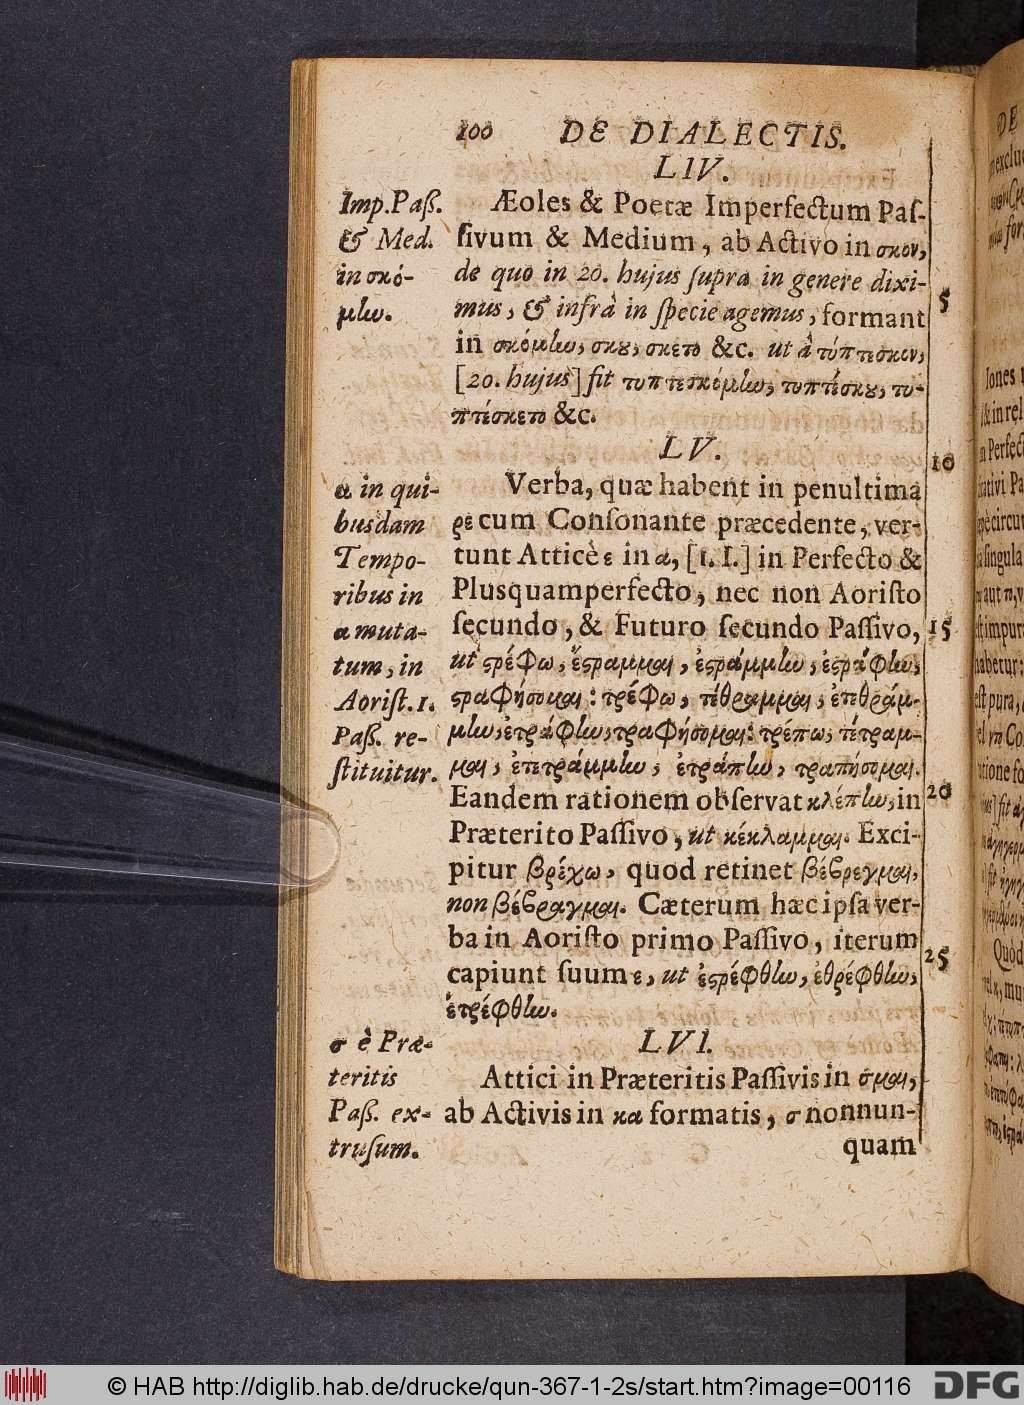 100 DE DIALECTIS.
LIV.
Imp. Paß.
& Med.
in σκό-
μlω.
Æoles & Poetæ Imperfectum Paſ-
ſivum & Medium, ab Activo in σκον,
de quo in 20. hujus ſupra in genere dixi-
mus, & infrà in ſpecie agemus, formant
in σκόμlω, σκȣ, σκετο &c. ut à τύπτεσκον,
[20. hujus] fit τυπτεσκόμlω, τυπτέσκȣ, τυ-
πτέσκετο &c.
5
LV.
10
α in qui-
busdam
Tempo-
ribus in
α muta-
tum, in
Aoriſt. 1.
Paß. re-
ſtituitur.
Verba, quæ habent in penultima
ρε cum Conſonante præcedente, ver-
tunt Atticè ε in α, [1. I.] in Perfecto &
Plusquamperfecto, nec non Aoriſto
ſecundo, & Futuro ſecundo Paſſivo,
ut ϛρέφω, ἔϛραμμαι, ἐϛράμμlω, ἐϛράφlω,
ϛραφήσομαι: τρέφω, τέθραμμαι, ἐτεθράμ-
μlω, ἐτράφlω, τραφήσομαι: τρέπω, τέτραμ-
μαι, ἐπετράμμlω, ἐτράπlω, τραπήσομαι.
Eandem rationem obſervat κλέπlω, in
Præterito Paſſivo, ut κέκλαμμαι. Exci-
pitur βρέχω, quod retinet βέβρεγμαι,
non βέβραγμαι. Cæterum hæc ipſa ver-
ba in Aoriſto primo Paſſivo, iterum
capiunt ſuum ε, ut ἐϛρέφθlω, ἐθρέφθlω,
ἐτρέφθlω.
15
20
25
LVI.
σ è Præ-
teritis
Paß. ex-
truſum.
Attici in Præteritis Paſſivis in σμαι,
ab Activis in κα formatis, σ nonnun-
quam
© HAB http://diglib.hab.de/drucke/qun-367-1-2s/start.htm?image=00116
DFG